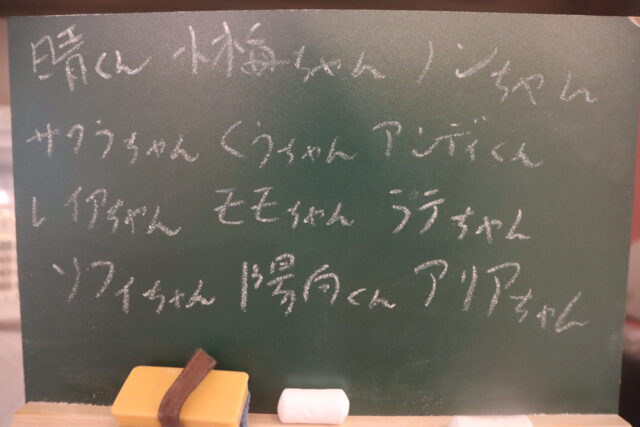 晴くん 小梅ちゃん ノンちゃん
サクラちゃん くうちゃん アンディくん
レイアちゃん モモちゃん ラテちゃん
ソフィちゃん 陽向くん アリアちゃん